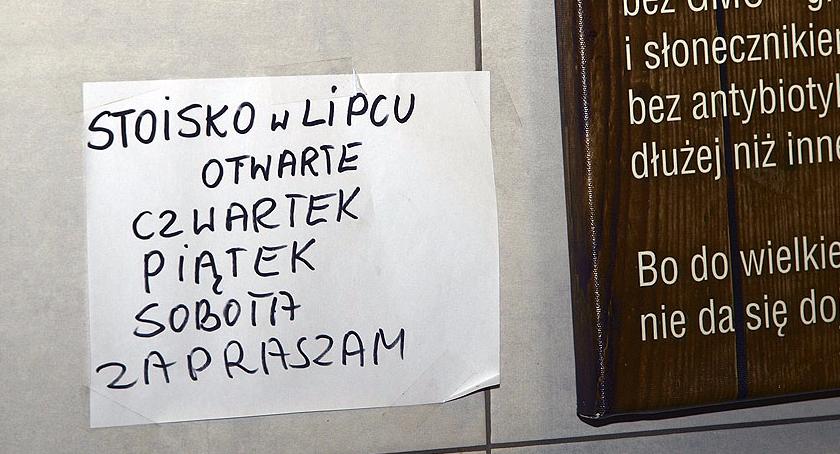 STOISKO W LIPCU
OTWARTE
CZWARTEK
PIĄTEK
SOBOTA
ZAPRASZAM
bez GMO
i słonecznikie
bez antybioty
dłużej niż inne
Bo do wielkie
nie da się do